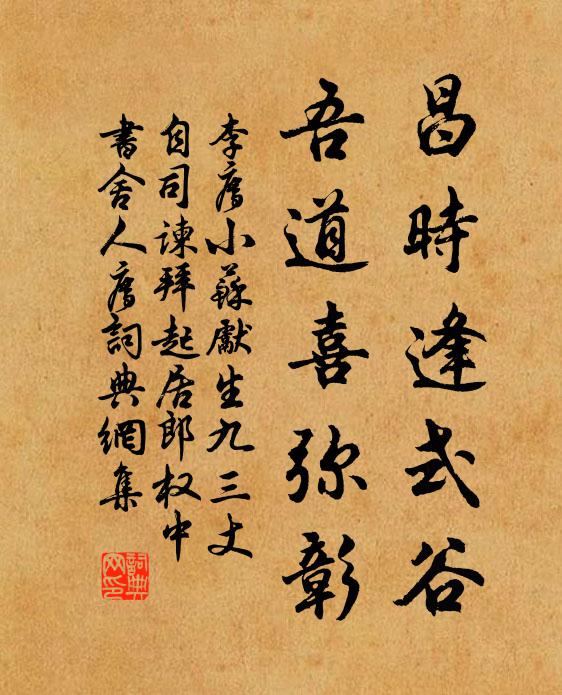 昌時逢式谷
吾道喜弥彰
李廌小蘇獻生九三丈
自司諫拜起居郎权中
書舍人廌詞典網集
詞典网印